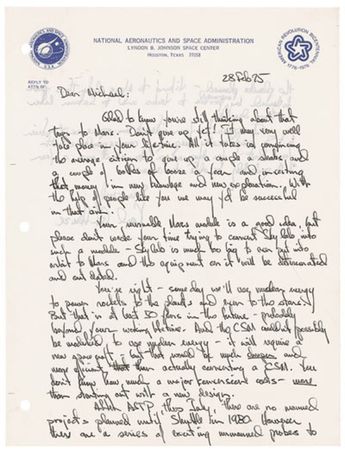 NATIONAL AERONAUTICS AND SPACE ADMINISTRATION
LYNDON B. JOHNSON SPACE CENTER
HOUSTON, TEXAS 77058
AMERICAN REVOLUTION BICENTENNIAL
1776-1976
REPLY TO
ATTN OF:
28 Feb 75
Dear Michael:
Glad to know you're still thinking about that
trip to Mars. Don't give up yet! It may very well
take place in your lifetime. All it takes is convincing
the average citizen to give up a couple a steaks and
a couple of bottles of booze a year and investing
that money in new knowledge and new exploration. With
the help of people like you we may yet be successful
in that aim.
Your reuseable Mars module is a good idea, but
please don't waste your time trying to convert Skylab into
such a module - Skylab is much too big to ever put into
orbit to Mars and the equipment on it will be deteriorated
and out dated.
You're right - some day we'll use nuclear energy
to power rockets to the planets and even to the stars.
But that is at least 30 years in the future - probably
beyond your working lifetime. And the CSM couldn't possibly
be modified to use nuclear energy - it will require a
new spacecraft, but that would be much cheaper and
more efficient than actually converting a CSM. You
don't know how much a major conversion costs - more
than starting out with a new design.
After ASTP this July, there are no manned
projects planned until Shuttle in 1980. However
there are a series of exciting unmanned probes to